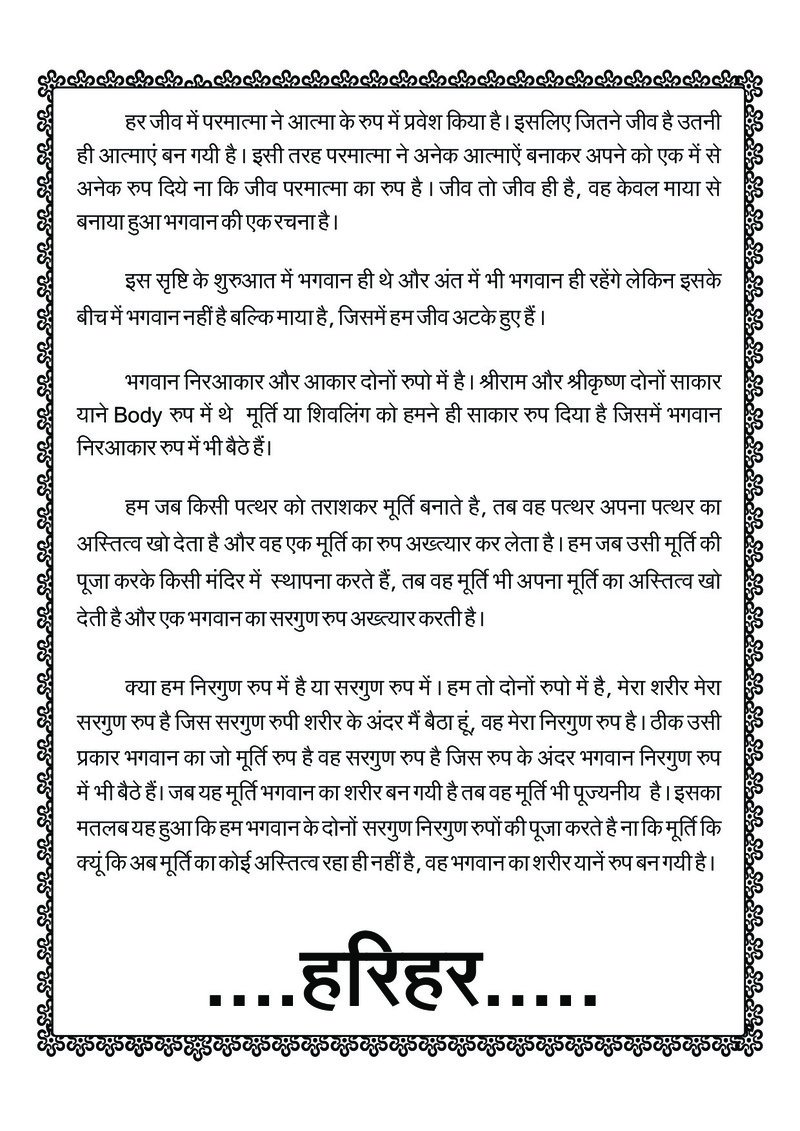 हर जीव में परमात्मा ने आत्मा के रुप में प्रवेश किया है। इसलिए जितने जीव है उतनी
ही आत्माएं बन गयी है। इसी तरह परमात्मा ने अनेक आत्माऐं बनाकर अपने को एक में से
अनेक रुप दिये ना कि जीव परमात्मा का रुप है। जीव तो जीव ही है, वह केवल माया से
बनाया हुआ भगवान की एक रचना है।
इस सृष्टि के शुरुआत में भगवान ही थे और अंत में भी भगवान ही रहेंगे लेकिन इसके
बीच में भगवान नहीं है बल्कि माया है, जिसमें हम जीव अटके हुए हैं।
भगवान निरआकार और आकार दोनों रुपो में है। श्रीराम और श्रीकृष्ण दोनों साकार
याने Body रुप में थे मूर्ति या शिवलिंग को हमने ही साकार रुप दिया है जिसमें भगवान
निरआकार रुप में भी बैठे हैं।
हम जब किसी पत्थर को तराशकर मूर्ति बनाते है, तब वह पत्थर अपना पत्थर का
अस्तित्व खो देता है और वह एक मूर्ति का रुप अख्त्यार कर लेता है। हम जब उसी मूर्ति की
पूजा करके किसी मंदिर में स्थापना करते हैं, तब वह मूर्ति भी अपना मूर्ति का अस्तित्व खो
देती है और एक भगवान का सरगुण रुप अख्त्यार करती है।
क्या हम निरगुण रुप में है या सरगुण रुप में। हम तो दोनों रुपो में है, मेरा शरीर मेरा
सरगुण रुप है जिस सरगुण रुपी शरीर के अंदर मैं बैठा हूं, वह मेरा निरगुण रुप है। ठीक उसी
प्रकार भगवान का जो मूर्ति रुप है वह सरगुण रुप है जिस रुप के अंदर भगवान निरगुण रुप
में भी बैठे हैं। जब यह मूर्ति भगवान का शरीर बन गयी है तब वह मूर्ति भी पूज्यनीय है। इसका
मतलब यह हुआ कि हम भगवान के दोनों सरगुण निरगुण रुपों की पूजा करते है ना कि मूर्ति कि
क्यूं कि अब मूर्ति का कोई अस्तित्व रहा ही नहीं है, वह भगवान का शरीर यानें रुप बन गयी है।
....हरिहर.....